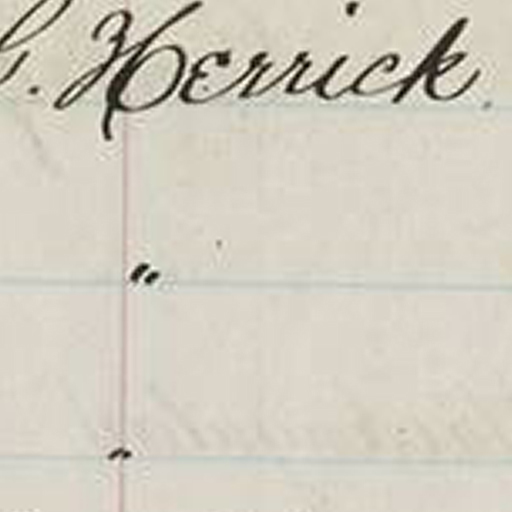 G. Herrick.
"
"